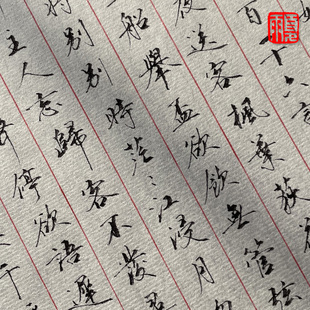 百十六言
夜送客楓葉荻
船舉盃欲飲無管絃
別別時茫〻江浸月
主人忘歸客不發尋
停欲語遲
千